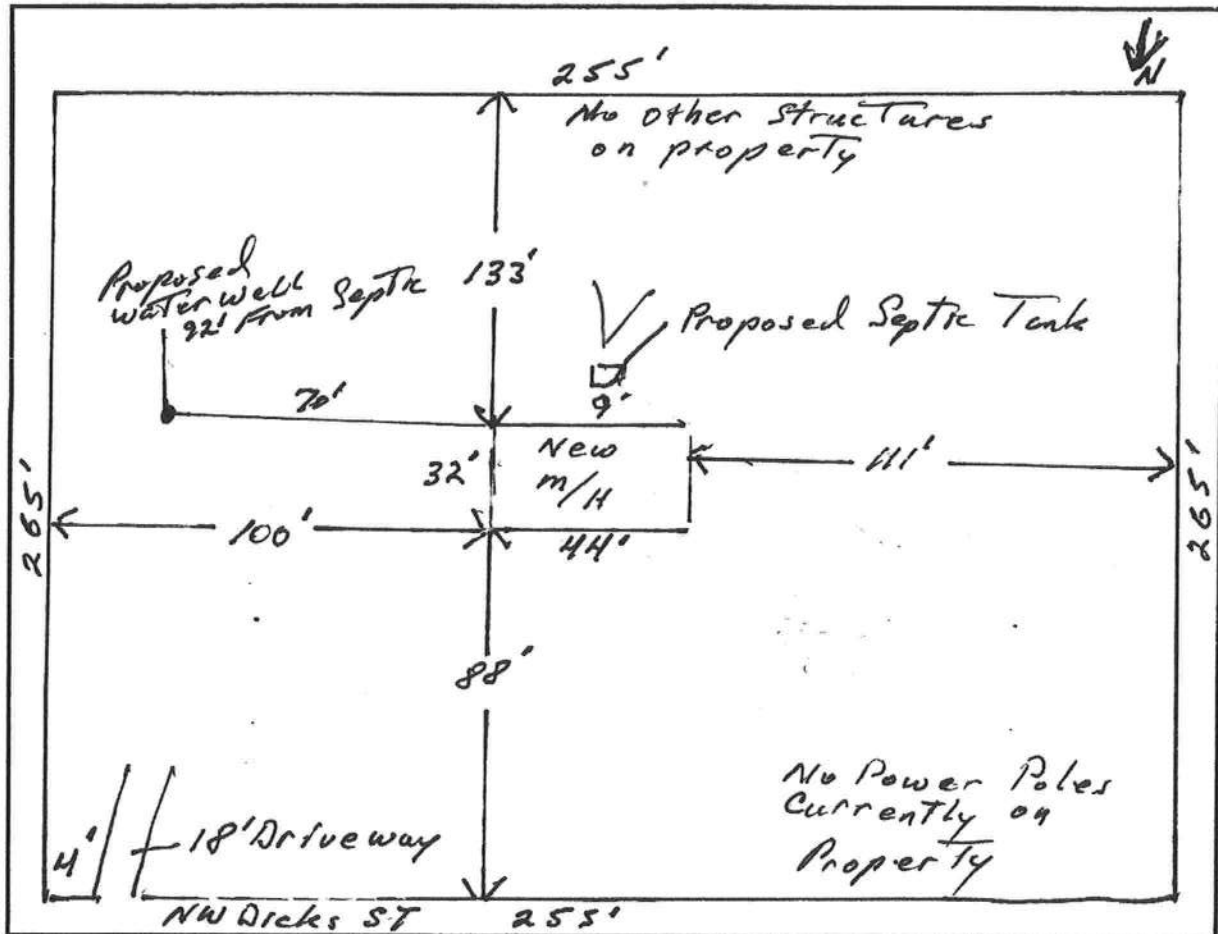 255'
N
No other Structures
on property
Proposed
water well
92' From Septic
133'
Proposed Septic Tank
70'
9'
New
m/H
32'
111'
265'
265'
100'
44'
88'
No Power Poles
Currently on
Property
4'
18' Driveway
NW Dicks ST
255'